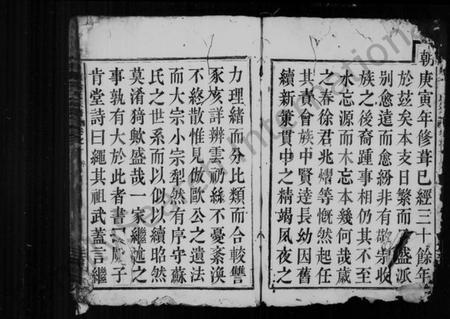 朝庚寅年修葺已經三十餘年
於玆矣本支日繁而盛派
别愈遠而愈紛非有敬宗收
族之後裔踵事相仍其不至
水忘源而木忘本幾何哉歲
之春徐君兆熠等慨然起任
其事會族中賢達長幼因舊
續新葉貫中之精竭夙夜之
力理緒而分比類而合較讐
豕亥詳辨雲礽絲不憂紊渙
不終散惟見倣歐公之遺法
而大宗小宗犁然有序守蘇
氏之世系而以似以續昭然
莫淆猗歟盛哉一家繼述之
事孰有大於此者書子
肯堂詩曰繩其祖武蓋言繼